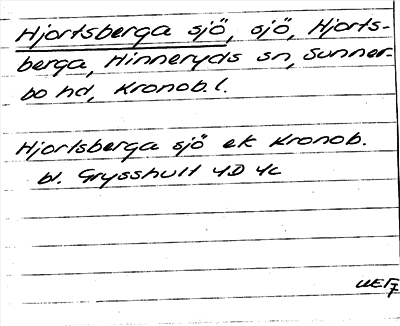 Hjortsberga sjö, sjö, Hjorts-
berga, Hinneryds sn, Sunner-
bo hd, Kronob. l.
Hjortsberga sjö ek Kronob.
bl. Grysshult 4D 4c